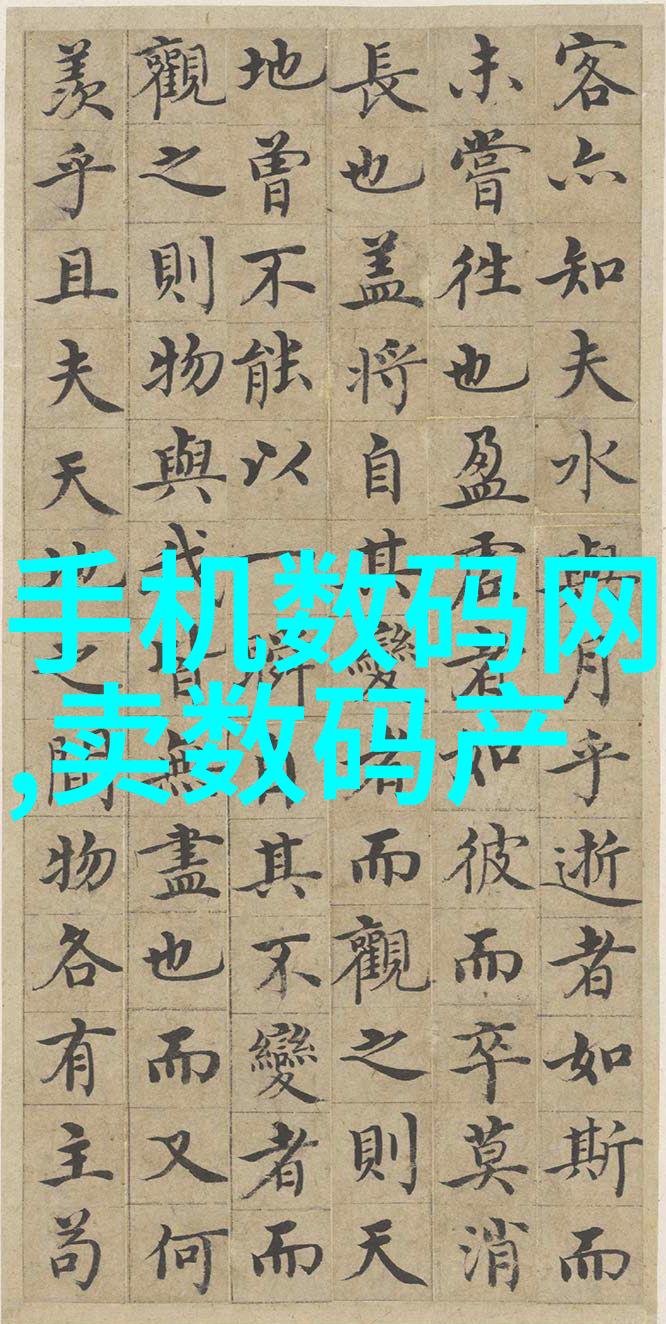 客亦知夫水與月乎逝者如斯而
未嘗往也盈虛者如彼而卒莫消
長也盖將自其變者而觀之則天
地曾不能以一瞬自其不變者而
觀之則物與我皆無盡也而又何
羨乎且夫天地之間物各有主苟
手机数码网
,卖数码产